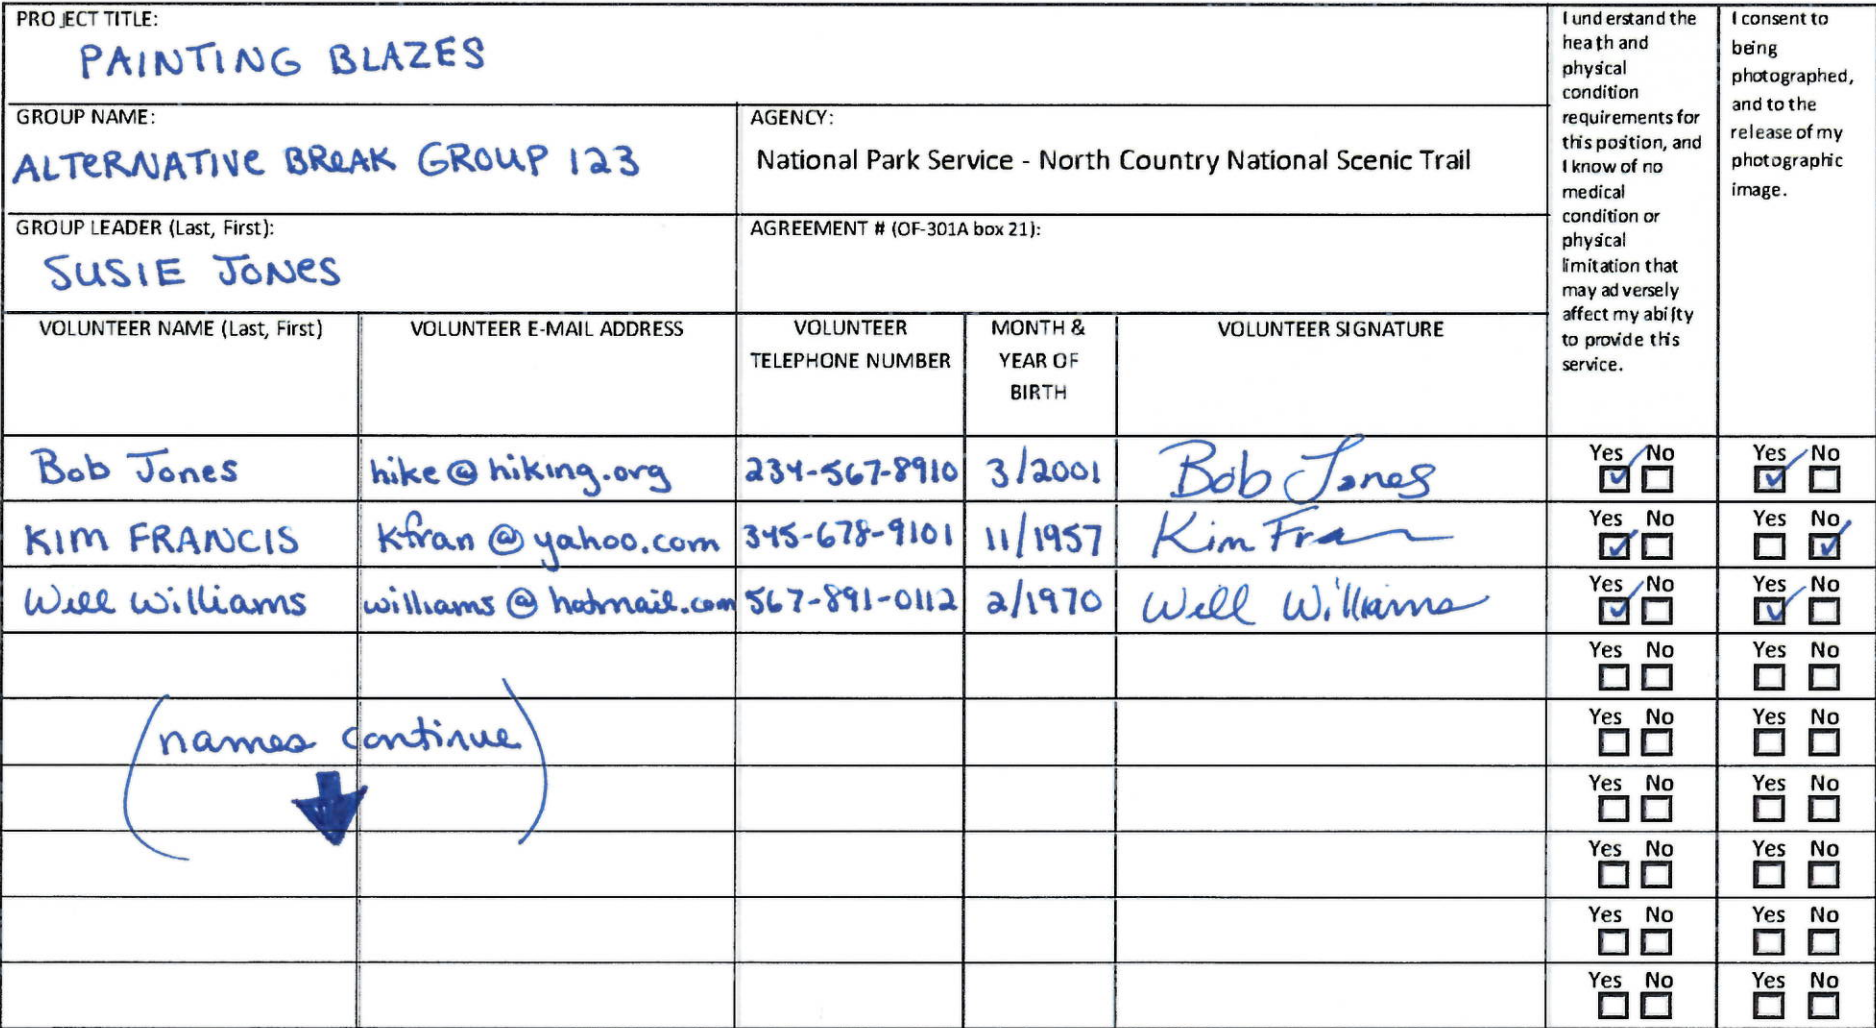 PROJECT TITLE:
PAINTING BLAZES
GROUP NAME:
ALTERNATIVE BREAK GROUP 123
AGENCY:
National Park Service - North Country National Scenic Trail
GROUP LEADER (Last, First):
SUSIE JONES
AGREEMENT # (OF-301A box 21):
I understand the
health and
physical
condition
requirements for
this position, and
I know of no
medical
condition or
physical
limitation that
may adversely
affect my ability
to provide this
service.
I consent to
being
photographed,
and to the
release of my
photographic
image.
VOLUNTEER NAME (Last, First)
VOLUNTEER E-MAIL ADDRESS
VOLUNTEER
TELEPHONE NUMBER
MONTH &
YEAR OF
BIRTH
VOLUNTEER SIGNATURE
Bob Jones hike@hiking.org 234-567-8910 3/2001 Bob Jones Yes No Yes No
KIM FRANCIS kfran@yahoo.com 345-678-9101 11/1957 Kim Fran Yes No Yes No
Will Williams williams@hotmail.com 567-891-0112 2/1970 Will Williams Yes No Yes No
Yes No Yes No
(names continue) Yes No Yes No
Yes No Yes No
Yes No Yes No
Yes No Yes No
Yes No Yes No